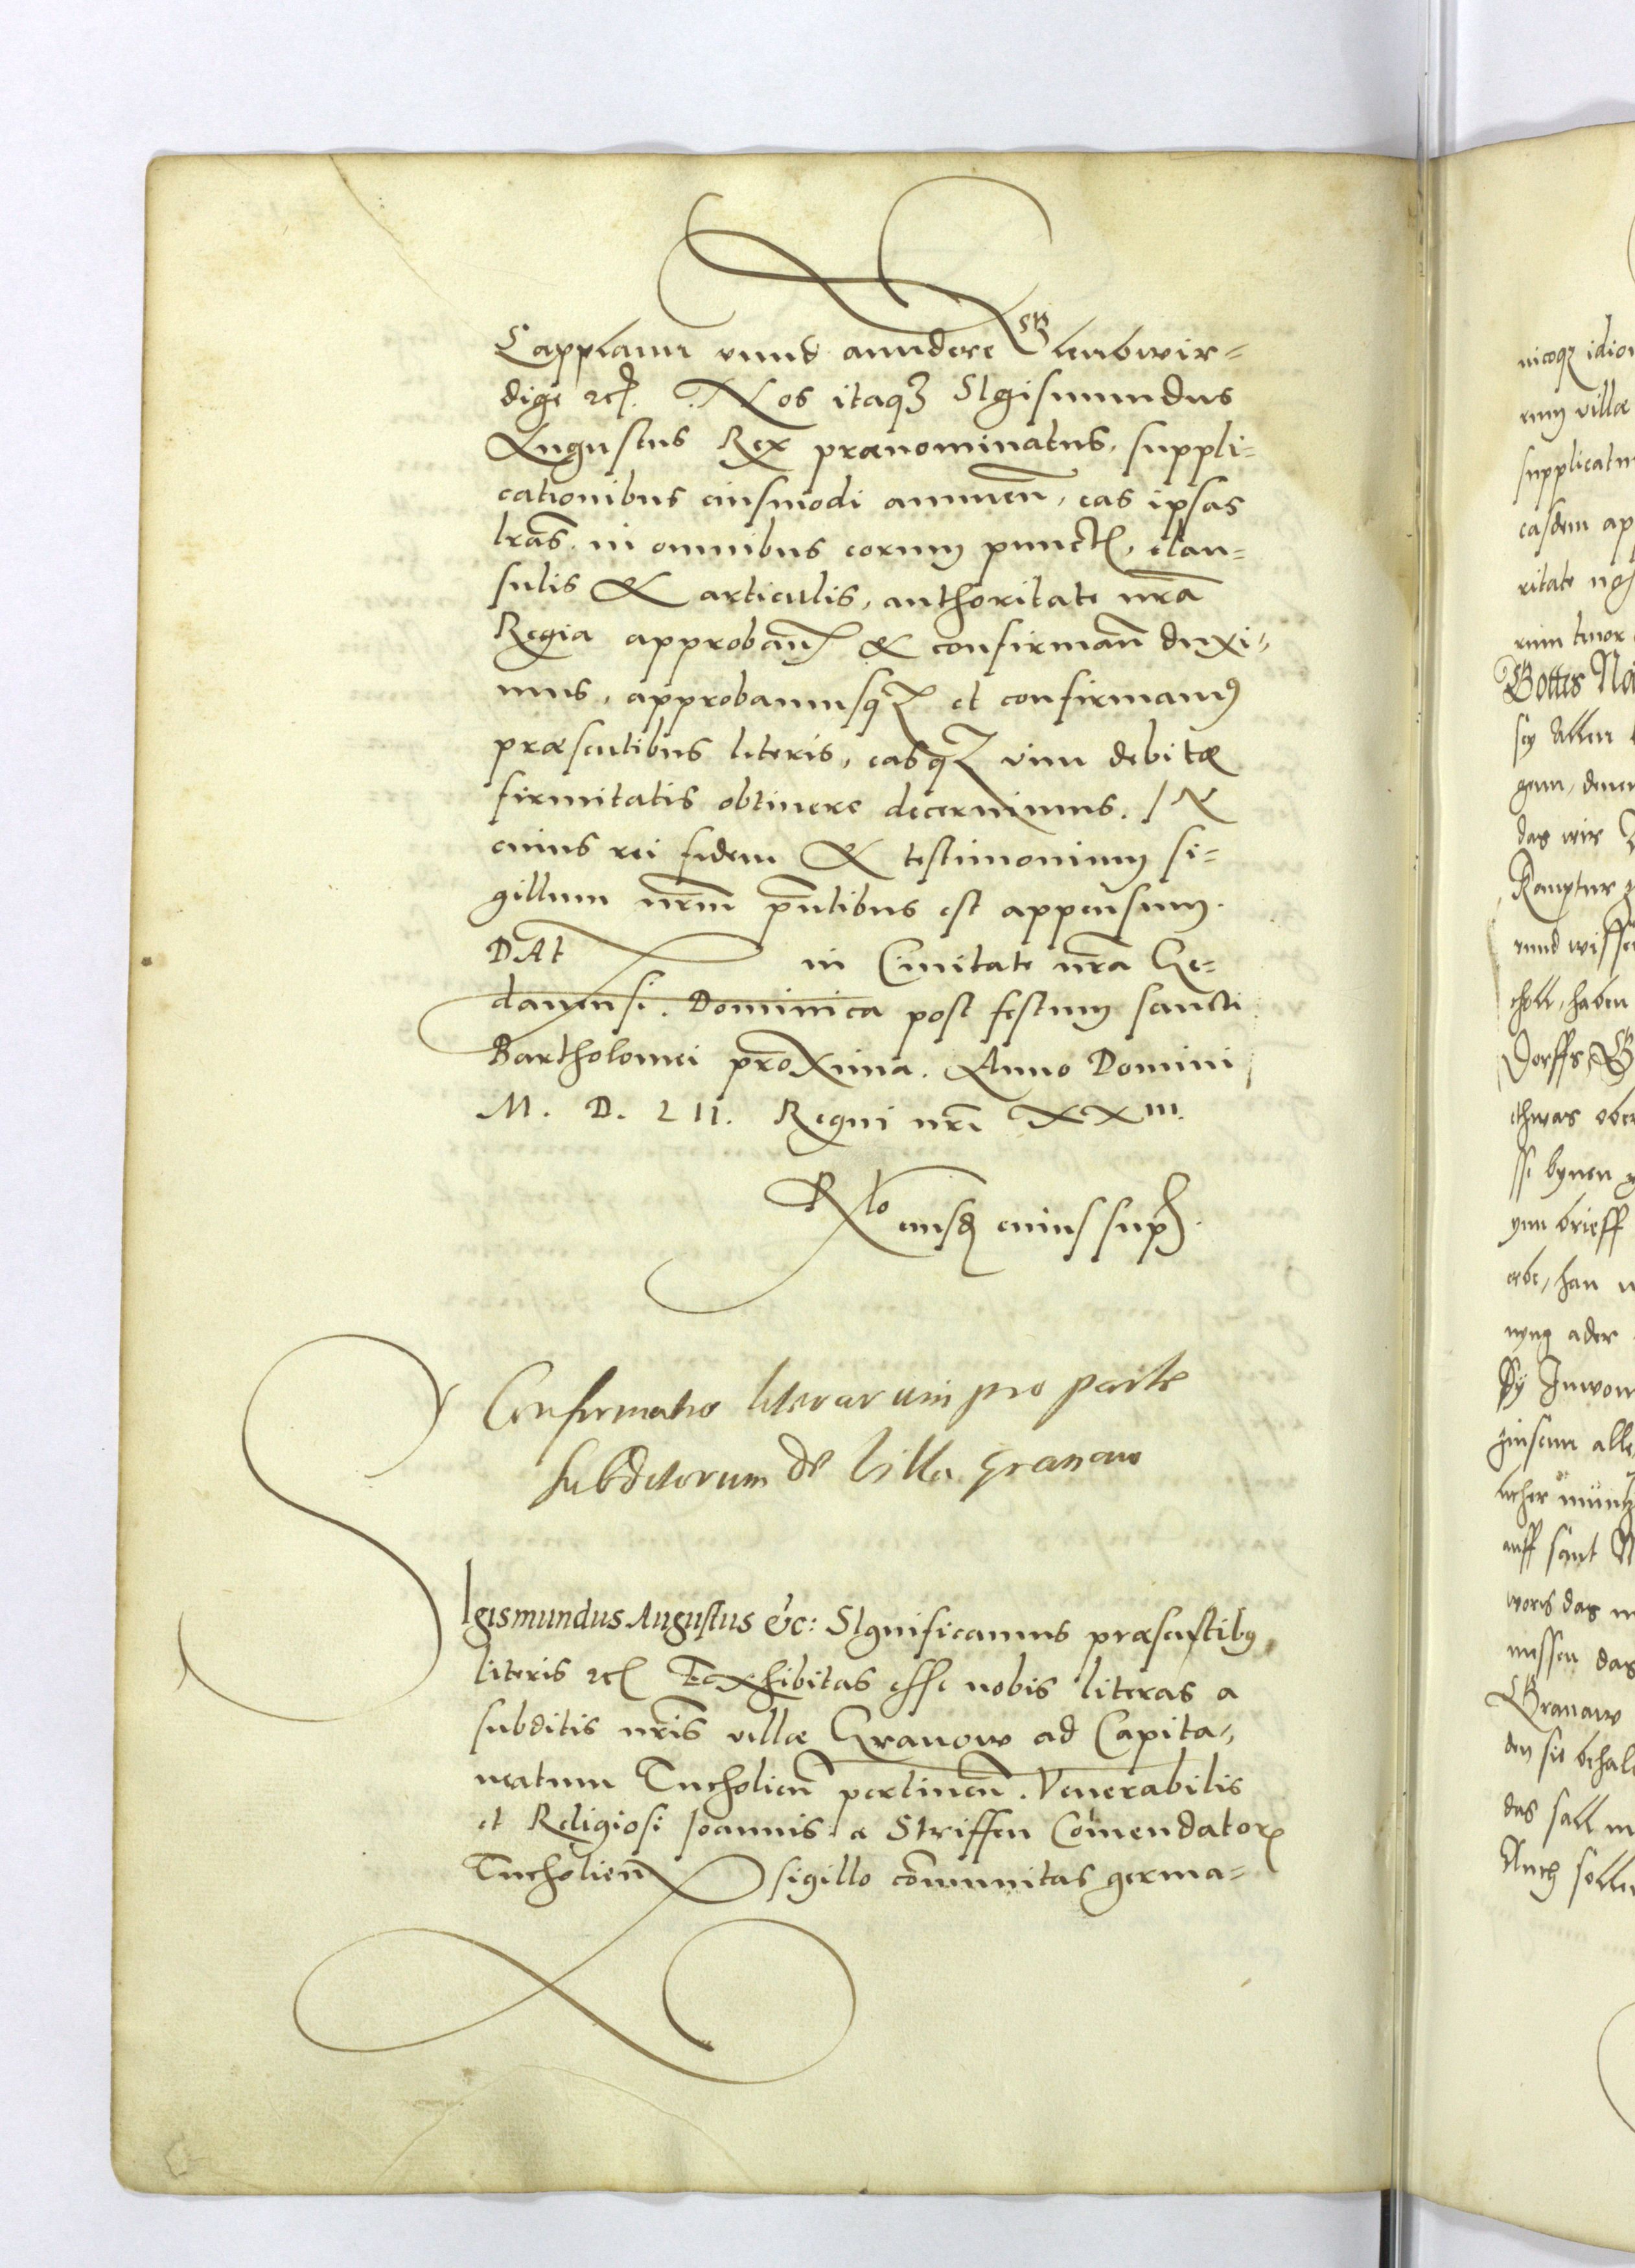 Capplann vnnd anndere Gleubwir=
dige ꝛc. Nos itaqꝫ SIgismundus
Augustus Rex prænominatus, suppli=
cationibus eiusmodi annuen̄, eas ipsas
lrās in omnibus eorum punctꝭ, clau=
sulis & articulis, authoritate nrā
Regia approban̄ & confirman̄ duxi=
mus, approbamusqꝫ et confirmamꝰ
præsentibus literis, easqꝫ vim debitæ
firmitatis obtinere decernimus. IN
cuius rei fidem & testimonium si=
gillum nrm̄ pn̄tibus est appensum.
DAt in Ciuitate nrā Ge=
danensi. Dominica post festum sancti
Bartholomei proxima. Anno Domini
M. D. LII. Regni nrī XXIII.
Rlo eiusd cuius supꝭ.
Confirmatio literarum pro parte
subditorum de Villa Granow
SIgismundus Augustus &c: SIgnificamus præsentibꝰ
literis ꝛc Exhibitas esse nobis literas a
subditis nrīs villæ Granow ad Capita=
neatum Tucholien̄ pertinen̄. Venerabilis
et Religiosi Ioannis a Striffen Com̄endatorꝭ
Tucholien̄ sigillo com̄unitas germa=
nicoqꝫ
villæ
supplicatum
easdem
ritate
Gottes
sey Allen
das wir
vnnd
haben
Dorffs
ynn brieff
han
nyng ader
alle
auff sant
das
Granaw
den sie
das sall
Auch sollen